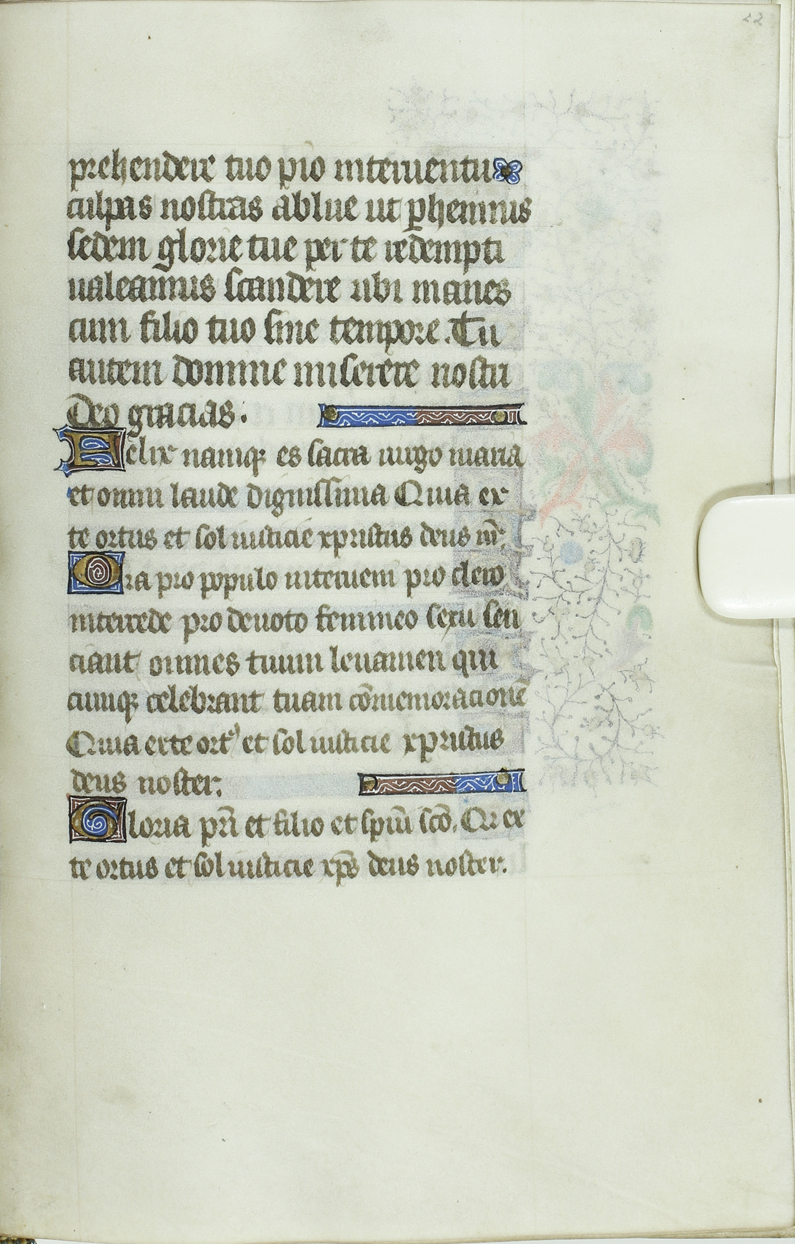 22
prehendere tuo pio interuentu
culpas nostras ablue ut ꝑhennius
sedem glorie tue per te redempti
ualeamus scandere ubi manes
cum filio tuo sine tempore. Tu
autem domine miserere nostri
Deo gracias.
Felix namqꝫ es sacra uirgo maria
et omni laude dignissima Quia ex
te ortus et sol iusticie xpristus deus nr̄.
Ora pro populo interueni pro clero
intercede pro deuoto femineo sexu sen
ciant omnes tuum leuamen qui
cumqꝫ celebrant tuam cōmemoracionē
Quia exte ortꝰ et sol iusticie xpristus
deus noster.
Gloria pr̄i et filio et spiū scō. Qr ex
te ortus et sol iusticie xp̄s deus noster.